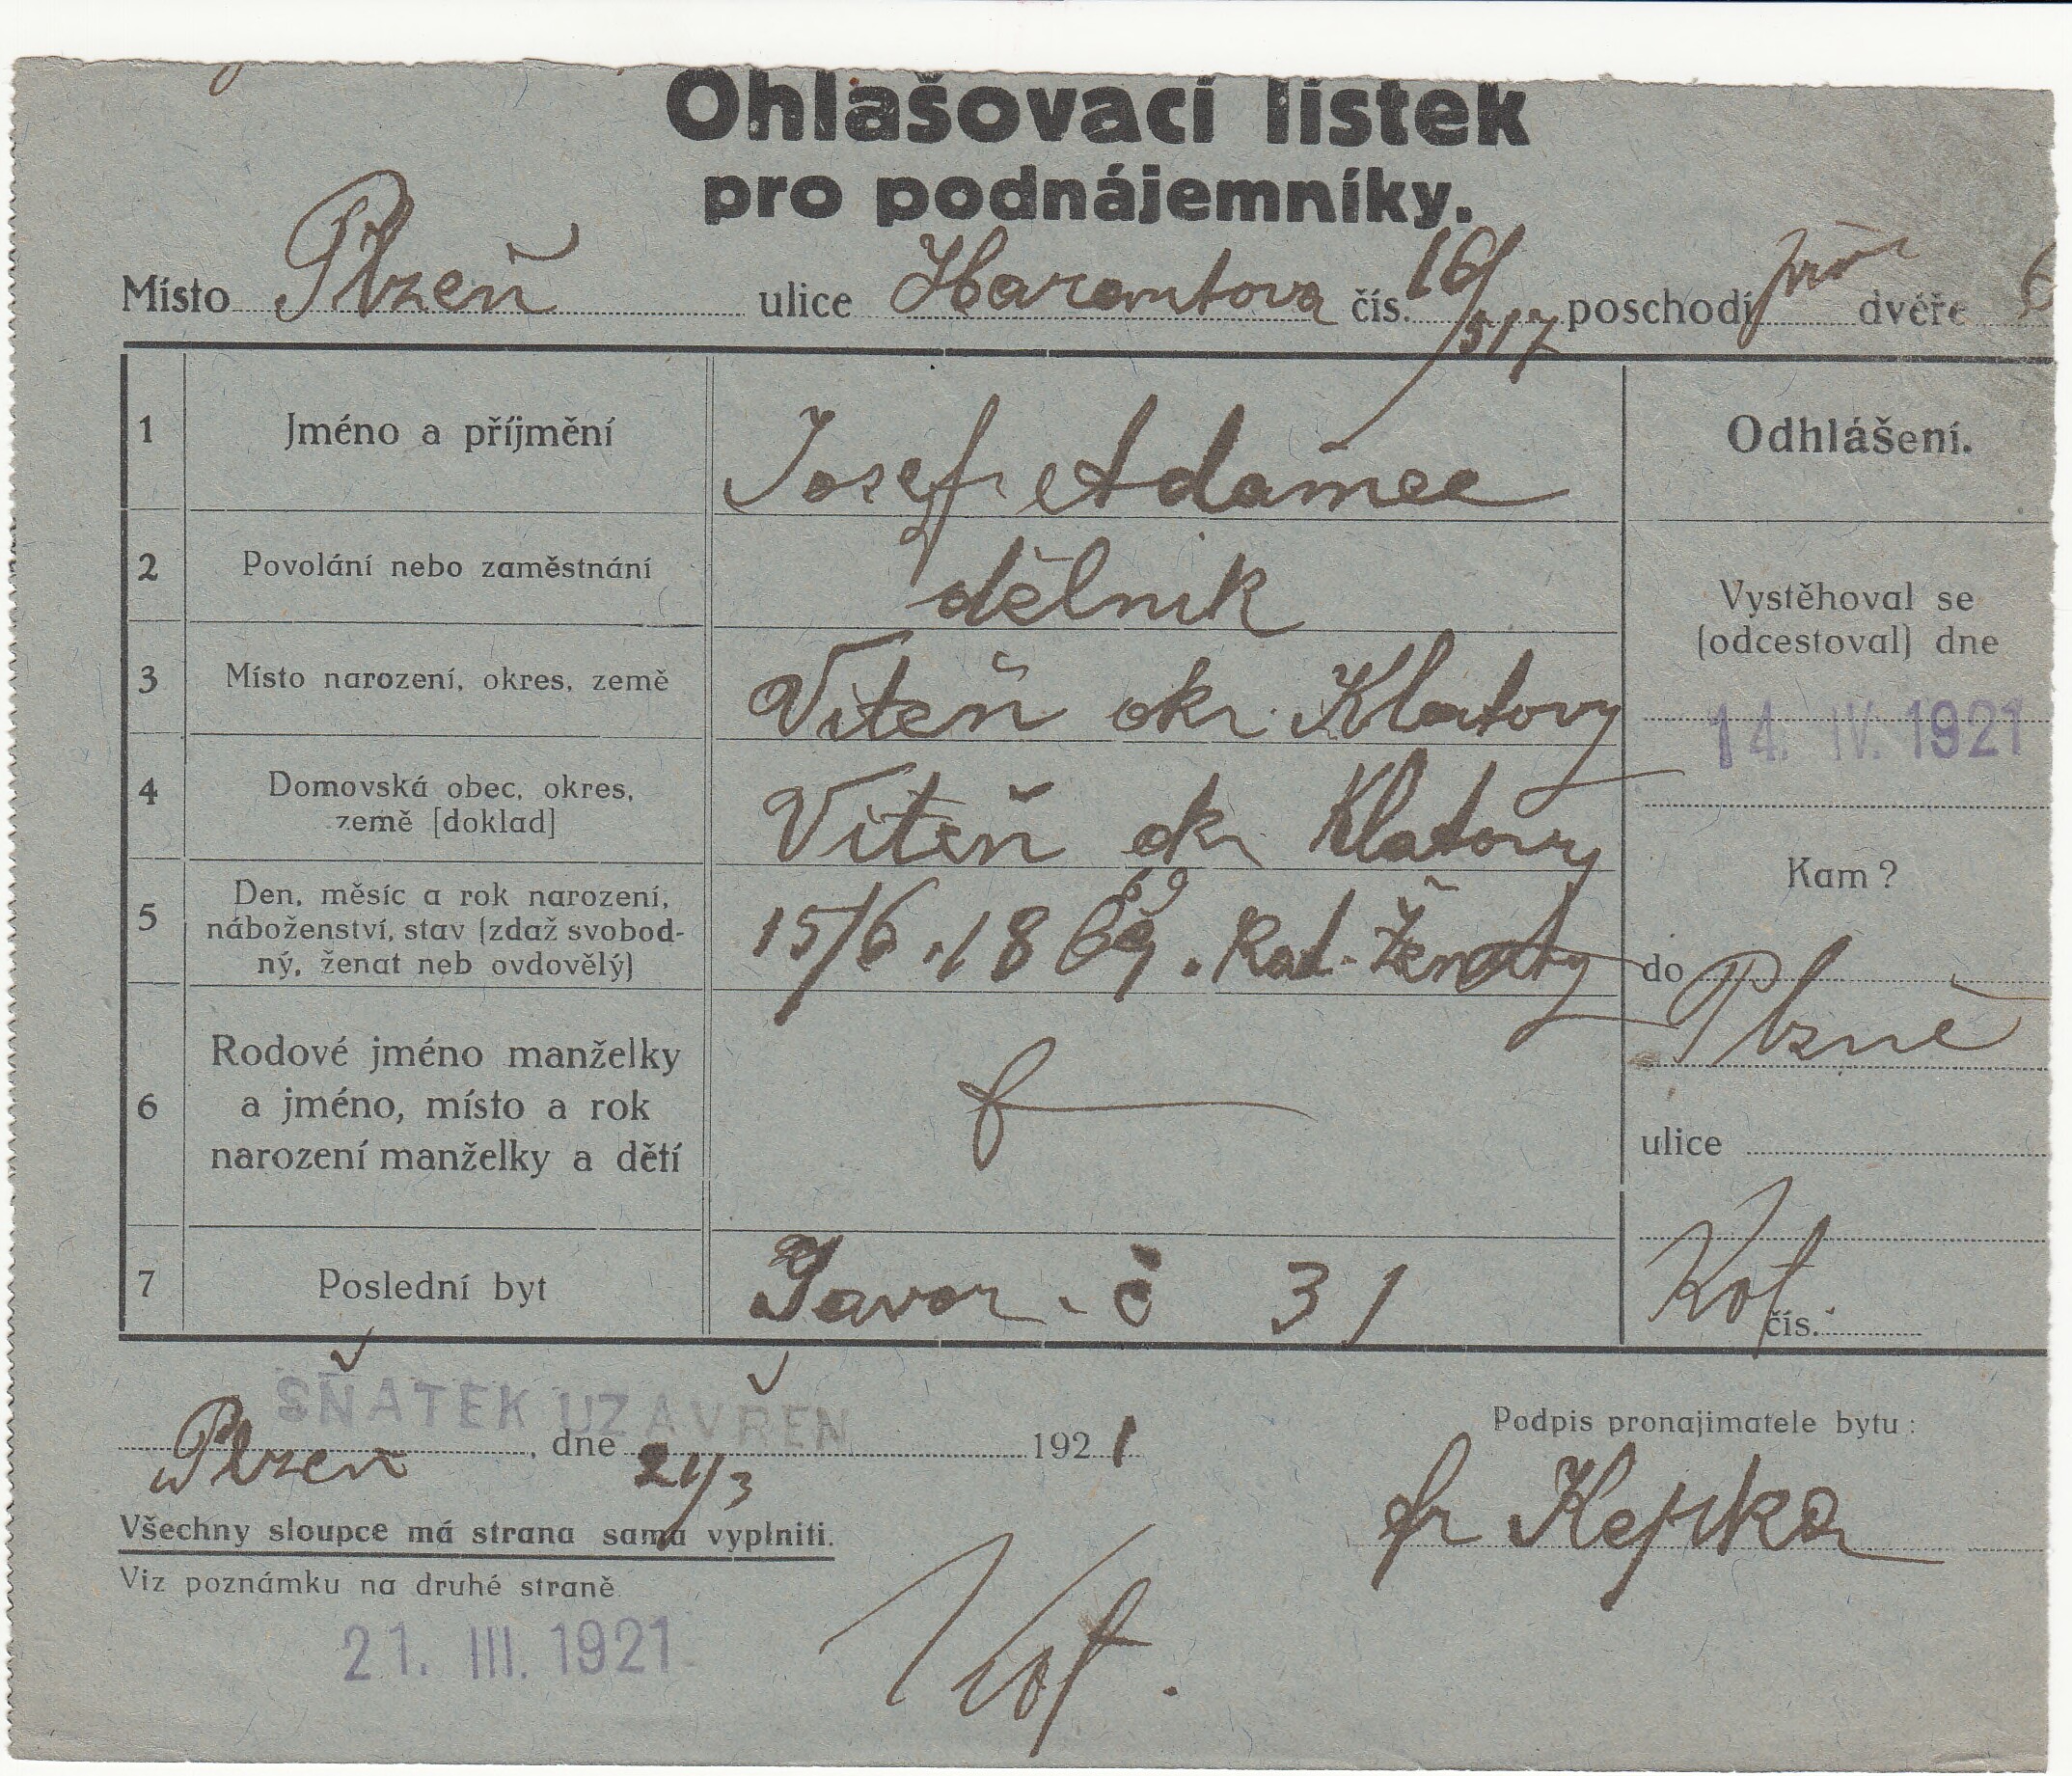 Ohlašovací lístek
pro podnájemníky.
Místo Plzeň ulice Harantova čís. 16/517 poschodí dvéře 6
1 Jméno a příjmění Josef Adamec Odhlášení.
2 Povolání nebo zaměstnání dělnik
Vystěhoval se
(odcestoval) dne
3 Místo narození, okres, země Viteň okr. Klatovy
14. IV. 1921
4 Domovská obec, okres,
země [doklad] Viteň okr Klatovy
Kam?
5 Den, měsíc a rok narození,
náboženství, stav (zdaž svobod-
ný, ženat neb ovdovělý)
69
15/6 . 1869 . Kat. Ženatý
do Plzně
6 Rodové jméno manželky
a jméno, místo a rok
narození manželky a dětí
ulice
7 Poslední byt Javor . č 31
Kot. čís.
SŇATEK UZAVŘEN
Plzeň, dne 21/3 1921
Podpis pronajimatele bytu:
fr
Všechny sloupce má strana sama vyplniti.
Viz poznámku na druhé straně
21. III. 1921
Kot.